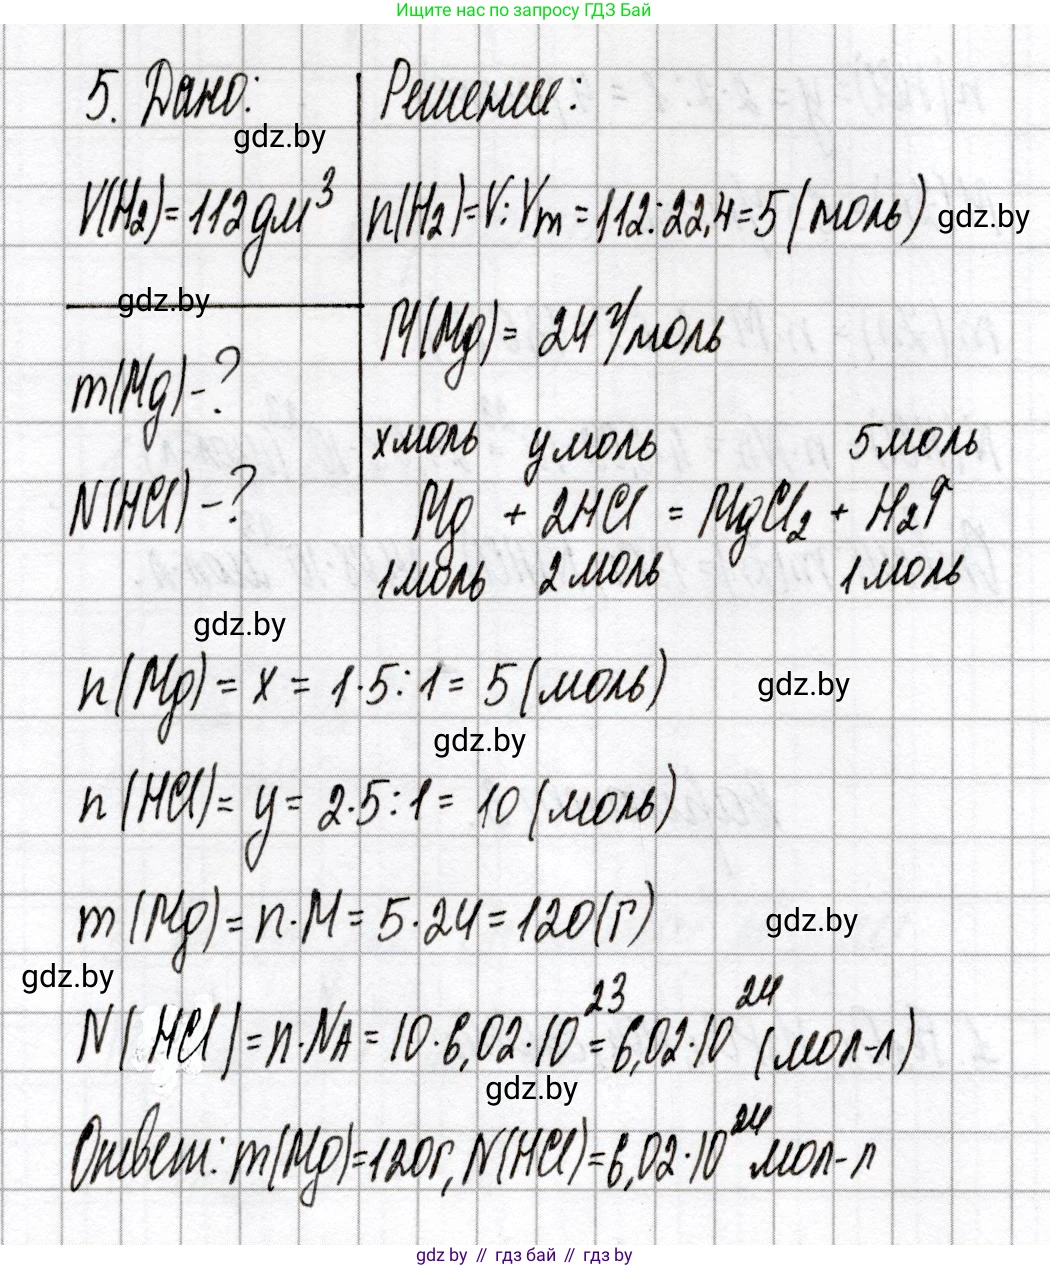 Ищите нас по запросу ГДЗ Бай
5. Дано:
Решение:
gdz.by
V(H₂)=112дм³
n(H₂)=V:Vm=112:22,4=5(моль)
gdz.by
gdz.by
M(Mg)=24г/моль
m(Mg)-?
x моль y моль 5 моль
N(HCl)-?
Mg + 2HCl = MgCl₂ + H₂↑
1 моль 2 моль 1 моль
gdz.by
n(Mg)=x=1·5:1=5(моль)
gdz.by
gdz.by
n(HCl)=y=2·5:1=10(моль)
m(Mg)=n·M=5·24=120(г)
gdz.by
gdz.by
N(HCl)=n·NA=10·6,02·10²³=6,02·10²⁴(мол-л)
gdz.by
Ответ: m(Mg)=120г, N(HCl)=6,02·10²⁴мол-л
gdz by // гдз бай // гдз by